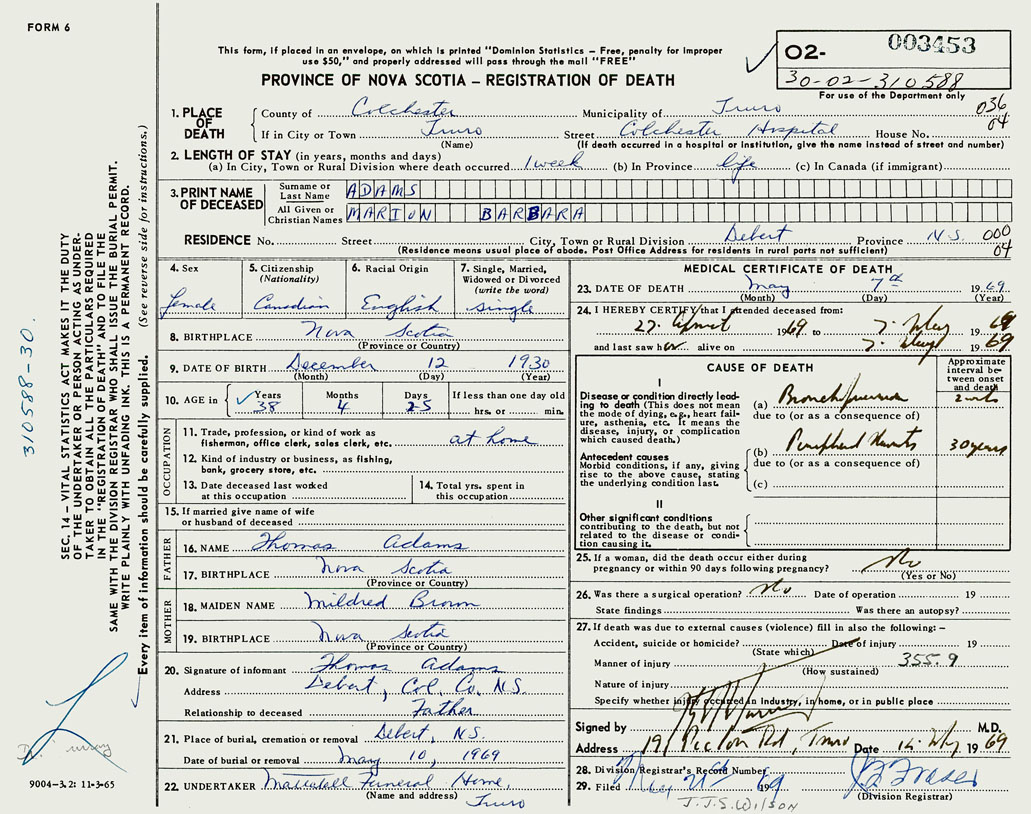 FORM 6
This form, if placed in an envelope, on which is printed "Dominion Statistics – Free, penalty for improper
use $50," and properly addressed will pass through the mail "FREE"
PROVINCE OF NOVA SCOTIA – REGISTRATION OF DEATH
O2- 003453
30-02-310588
For use of the Department only
SEC. 14 – VITAL STATISTICS ACT MAKES IT THE DUTY
OF THE UNDERTAKER OR PERSON ACTING AS UNDER-
TAKER TO OBTAIN ALL THE PARTICULARS REQUIRED
IN THE "REGISTRATION OF DEATH" AND TO FILE THE
SAME WITH THE DIVISION REGISTRAR WHO SHALL ISSUE THE BURIAL PERMIT.
WRITE PLAINLY WITH UNFADING INK. THIS IS A PERMANENT RECORD.
Every item of information should be carefully supplied. (See reverse side for instructions.)
310588-30.
1. PLACE OF DEATH
County of Colchester Municipality of Truro 036
If in City or Town Truro Street Colchester Hospital House No. 04
(Name) (If death occurred in a hospital or Institution, give the name instead of street and number)
2. LENGTH OF STAY (in years, months and days)
(a) In City, Town or Rural Division where death occurred 1 week (b) In Province life (c) In Canada (if immigrant)
3. PRINT NAME OF DECEASED
Surname or Last Name ADAMS
All Given or Christian Names MARION BARBARA
RESIDENCE No. Street City, Town or Rural Division Debert Province N.S. 000
(Residence means usual place of abode. Post Office Address for residents in rural parts not sufficient) 04
4. Sex female
5. Citizenship (Nationality) Canadian
6. Racial Origin English
7. Single, Married, Widowed or Divorced (write the word) single
8. BIRTHPLACE Nova Scotia
(Province or Country)
9. DATE OF BIRTH December 12 1930
(Month) (Day) (Year)
10. AGE in Years 38 Months 4 Days 25 If less than one day old hrs. or min.
OCCUPATION
11. Trade, profession, or kind of work as
fisherman, office clerk, sales clerk, etc. at home
12. Kind of industry or business, as fishing,
bank, grocery store, etc.
13. Date deceased last worked
at this occupation
14. Total yrs. spent in
this occupation
15. If married give name of wife
or husband of deceased
FATHER
16. NAME Thomas Adams
17. BIRTHPLACE Nova Scotia
(Province or Country)
MOTHER
18. MAIDEN NAME Mildred Brown
19. BIRTHPLACE Nova Scotia
(Province or Country)
20. Signature of informant Thomas Adams
Address Debert, Col. Co. N.S.
Relationship to deceased Father
21. Place of burial, cremation or removal Debert, N.S.
Date of burial or removal May 10, 1969
22. UNDERTAKER Funeral Home,
(Name and address) Truro
9004-3.2: 11-3-65
MEDICAL CERTIFICATE OF DEATH
23. DATE OF DEATH May 7th 1969
(Month) (Day) (Year)
24. I HEREBY CERTIFY that I attended deceased from:
27. 1969 to 7. May 1969
and last saw her alive on 7. May 1969
CAUSE OF DEATH
Approximate interval between onset and death
I
Disease or condition directly leading to death (This does not mean the mode of dying, e.g., heart failure, asthenia, etc. It means the disease, injury, or complication which caused death.)
(a) Bronchopneumonia 2 wks
due to (or as a consequence of)
Antecedent causes
Morbid conditions, if any, giving rise to the above cause, stating the underlying condition last.
(b) Peripheral 30 years
due to (or as a consequence of)
(c)
II
Other significant conditions
contributing to the death, but not related to the disease or condition causing it.
25. If a woman, did the death occur either during
pregnancy or within 90 days following pregnancy? No
(Yes or No)
26. Was there a surgical operation? No Date of operation 19
State findings Was there an autopsy?
27. If death was due to external causes (violence) fill in also the following: –
Accident, suicide or homicide? Date of injury 19
(State which)
Manner of injury 355.9
(How sustained)
Nature of injury
Specify whether injury occurred in Industry, in home, or in public place
Signed by M.D.
Address 191 Pictou Rd, Truro Date 14 May 1969
28. Division Registrar's Record Number
29. Filed May 21st 1969 J Fraser
(Division Registrar)
J.J.S. WILSON